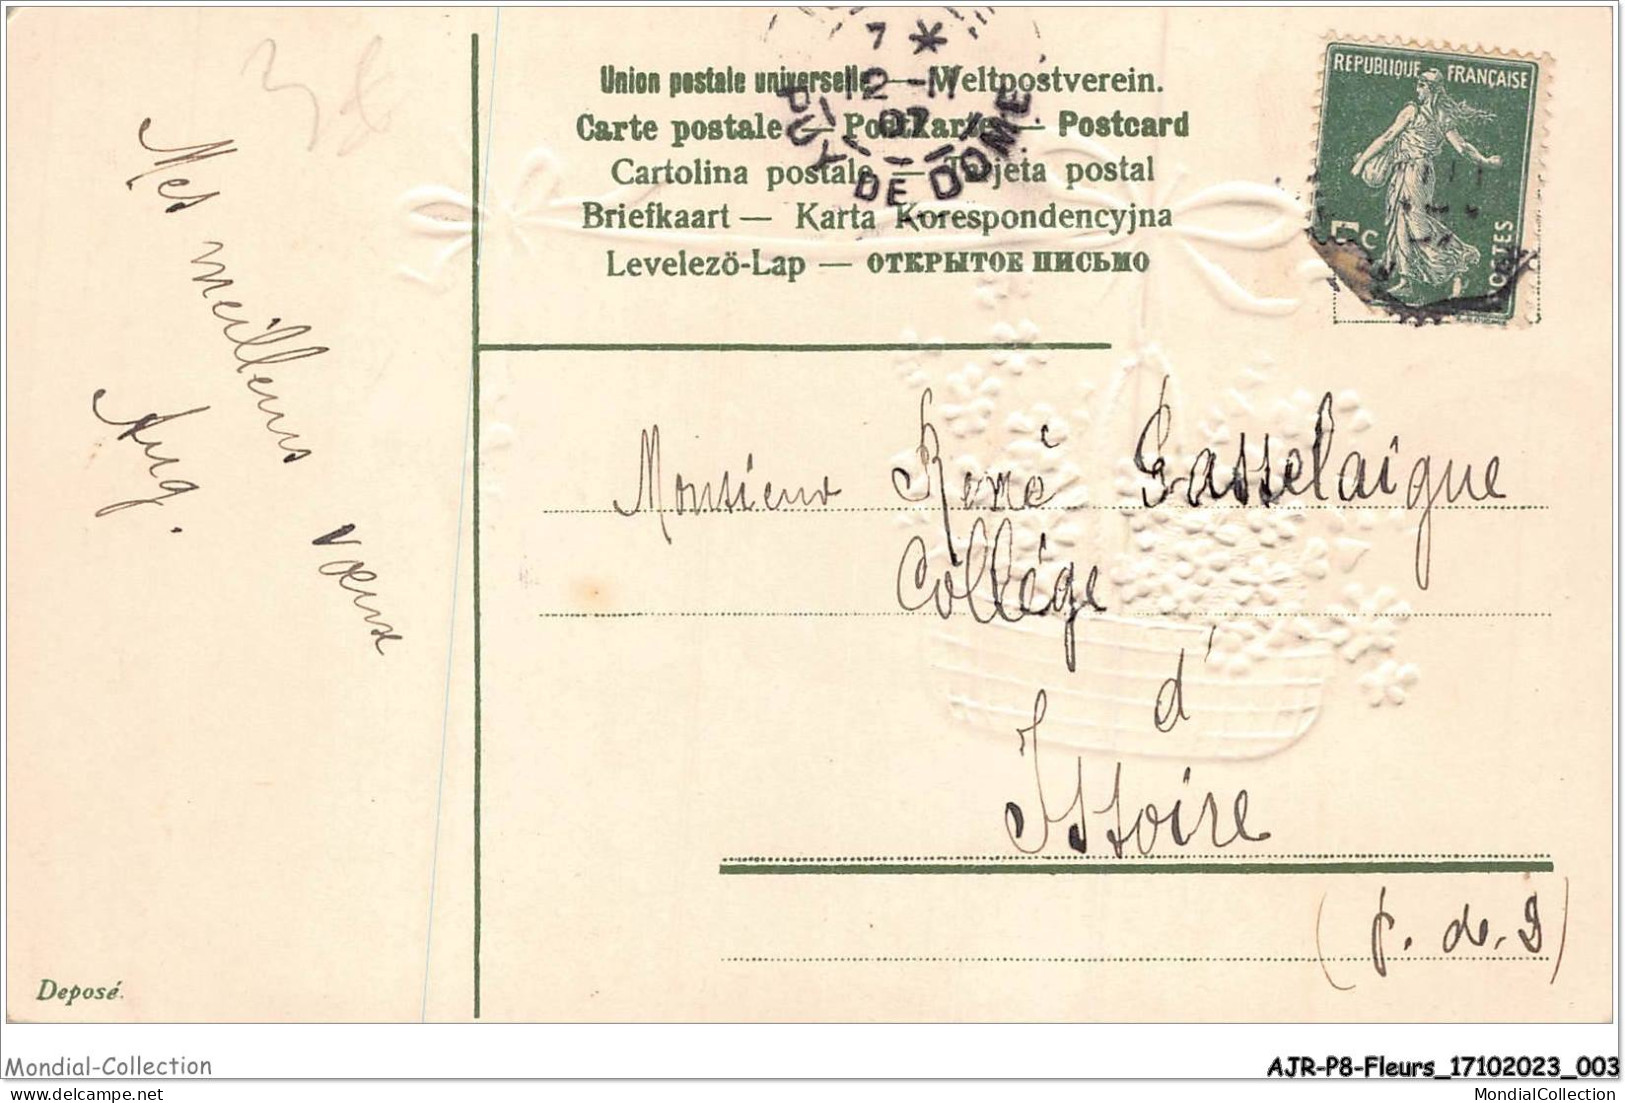 7 *
12 - 11
07
PUY-DE-DOME
Union postale universelle — Weltpostverein.
Carte postale — Postkarte — Postcard
Cartolina postale — Tarjeta postal
Briefkaart — Karta Korespondencyjna
Levelezö-Lap — ОТКРЫТОЕ ПИСЬМО
REPUBLIQUE FRANÇAISE
5c
POSTES
Mes meilleurs vœux
Aug.
Monsieur René Gasselaigue
Collège
d'
Issoire
(P. de. D)
Deposé.
Mondial-Collection
AJR-P8-Fleurs_17102023_003
delcampe.net
MondialCollection